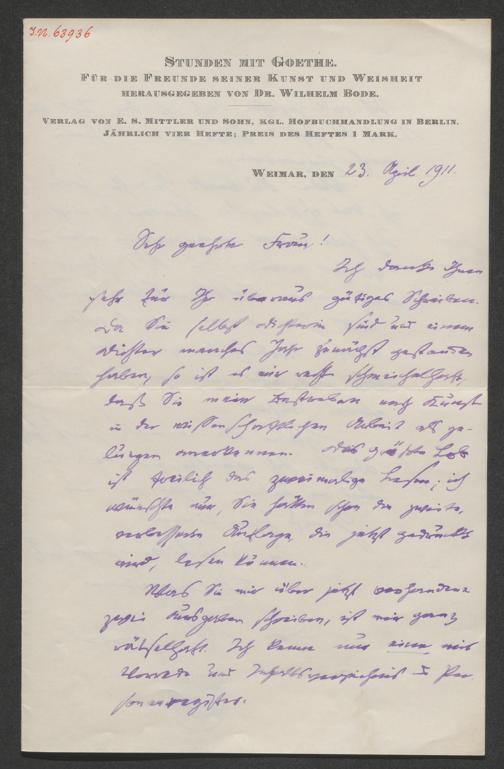 I.N. 63936
STUNDEN MIT GOETHE.
FÜR DIE FREUNDE SEINER KUNST UND WEISHEIT
HERAUSGEGEBEN VON DR. WILHELM BODE.
VERLAG VON E. S. MITTLER UND SOHN, KGL. HOFBUCHHANDLUNG IN BERLIN.
JÄHRLICH VIER HEFTE; PREIS DES HEFTES 1 MARK.
WEIMAR, DEN 23. April 1911.
Sehr geehrte Frau!
Ich danke Ihnen
sehr für Ihr überaus gütiges Schreiben.
Da Sie selbst Dichterin sind und einem
Dichter manches Jahr zunächst gestanden
haben, so ist es mir recht schmeichelhaft,
daß Sie mein Bestreben nach Kunst
in der wissenschaftlichen Arbeit als ge-
lungen anerkennen. Das größte Lob
ist freilich das zweimalige Lesen; ich
wünschte nur, Sie hätten schon die zweite,
verbesserte Auflage, die jetzt gedruckt
wird, lesen können.
Was Sie mir über jetzt vorhandene
zwei Ausgaben schreiben, ist mir ganz
rätselhaft. Ich kenne nur eine mit
Vorrede und Inhaltsverzeichnis u. Per-
sonenregister.